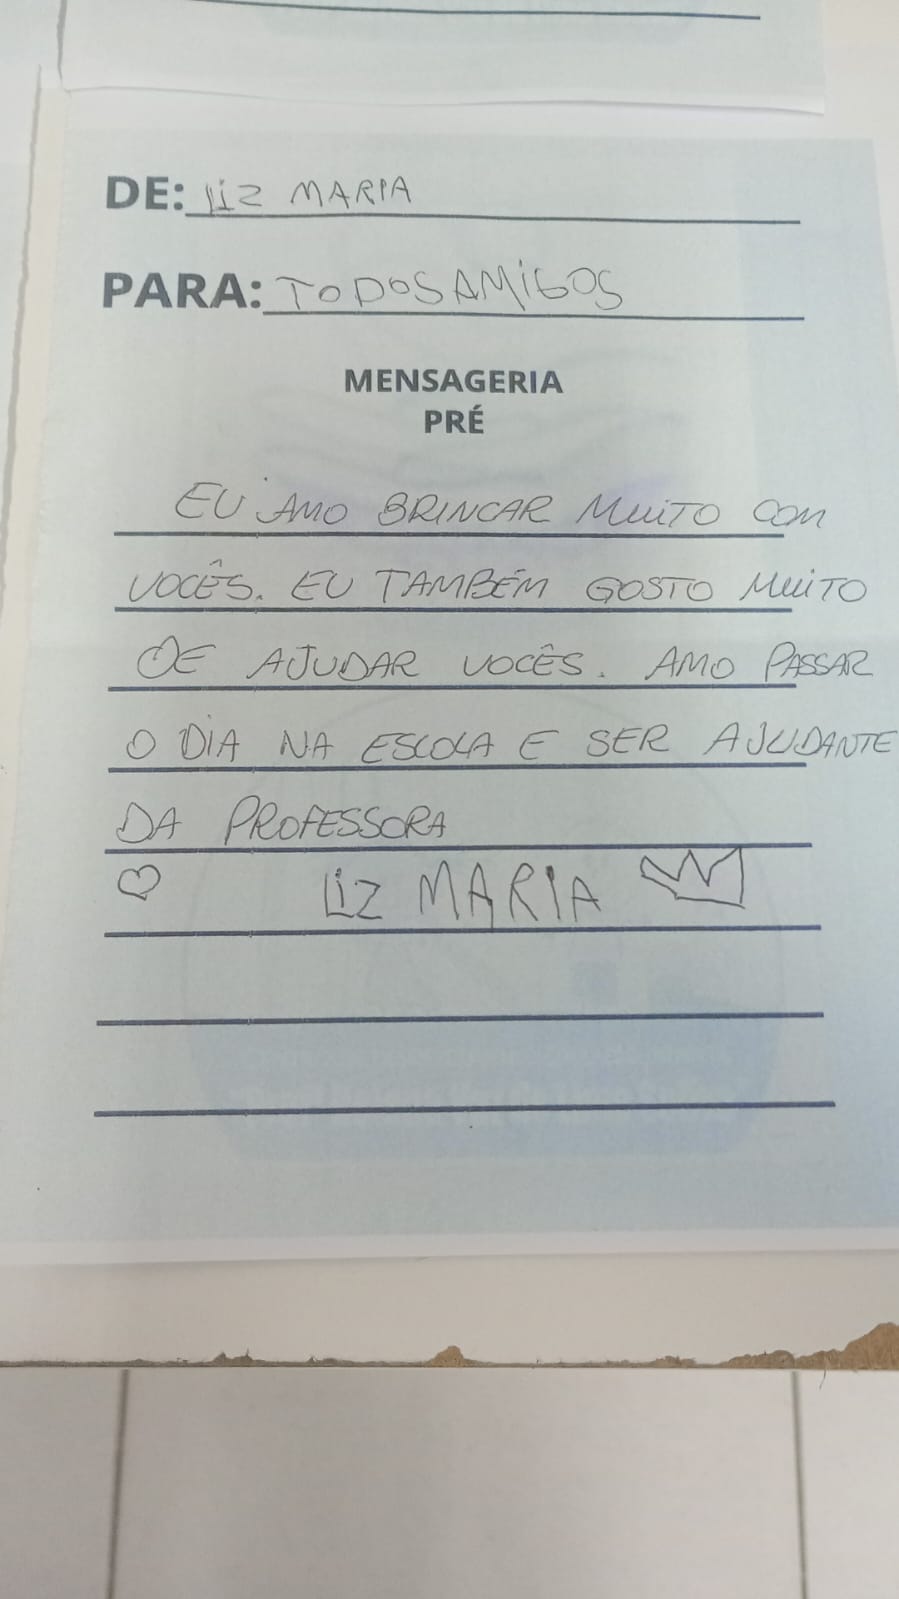 DE: LIZ MARIA
PARA: TODOS AMIGOS
MENSAGERIA
PRÉ
EU AMO BRINCAR MUITO COM
VOCÊS. EU TAMBÉM GOSTO MUITO
DE AJUDAR VOCÊS. AMO PASSAR
O DIA NA ESCOLA E SER AJUDANTE
DA PROFESSORA
LIZ MARIA